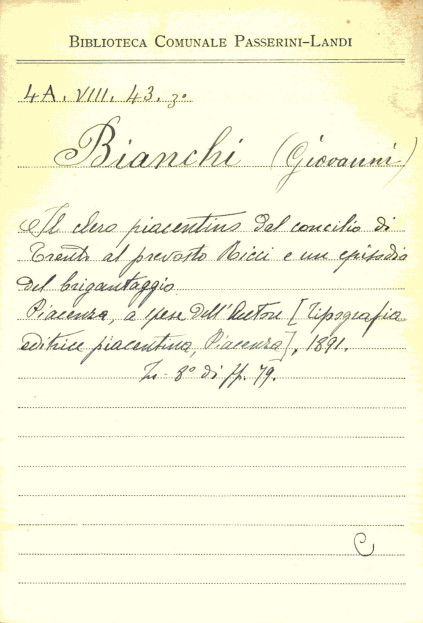 BIBLIOTECA COMUNALE PASSERINI-LANDI
4A. VIII. 43. 3°
Bianchi (Giovanni)
Il clero piacentino dal concilio di
Trento al prevosto Ricci e un episodio
del brigantaggio
Piacenza, a spese dell'Autore [Tipografia
editrice piacentina, Piacenza], 1891.
In-8° di pp. 79.
C